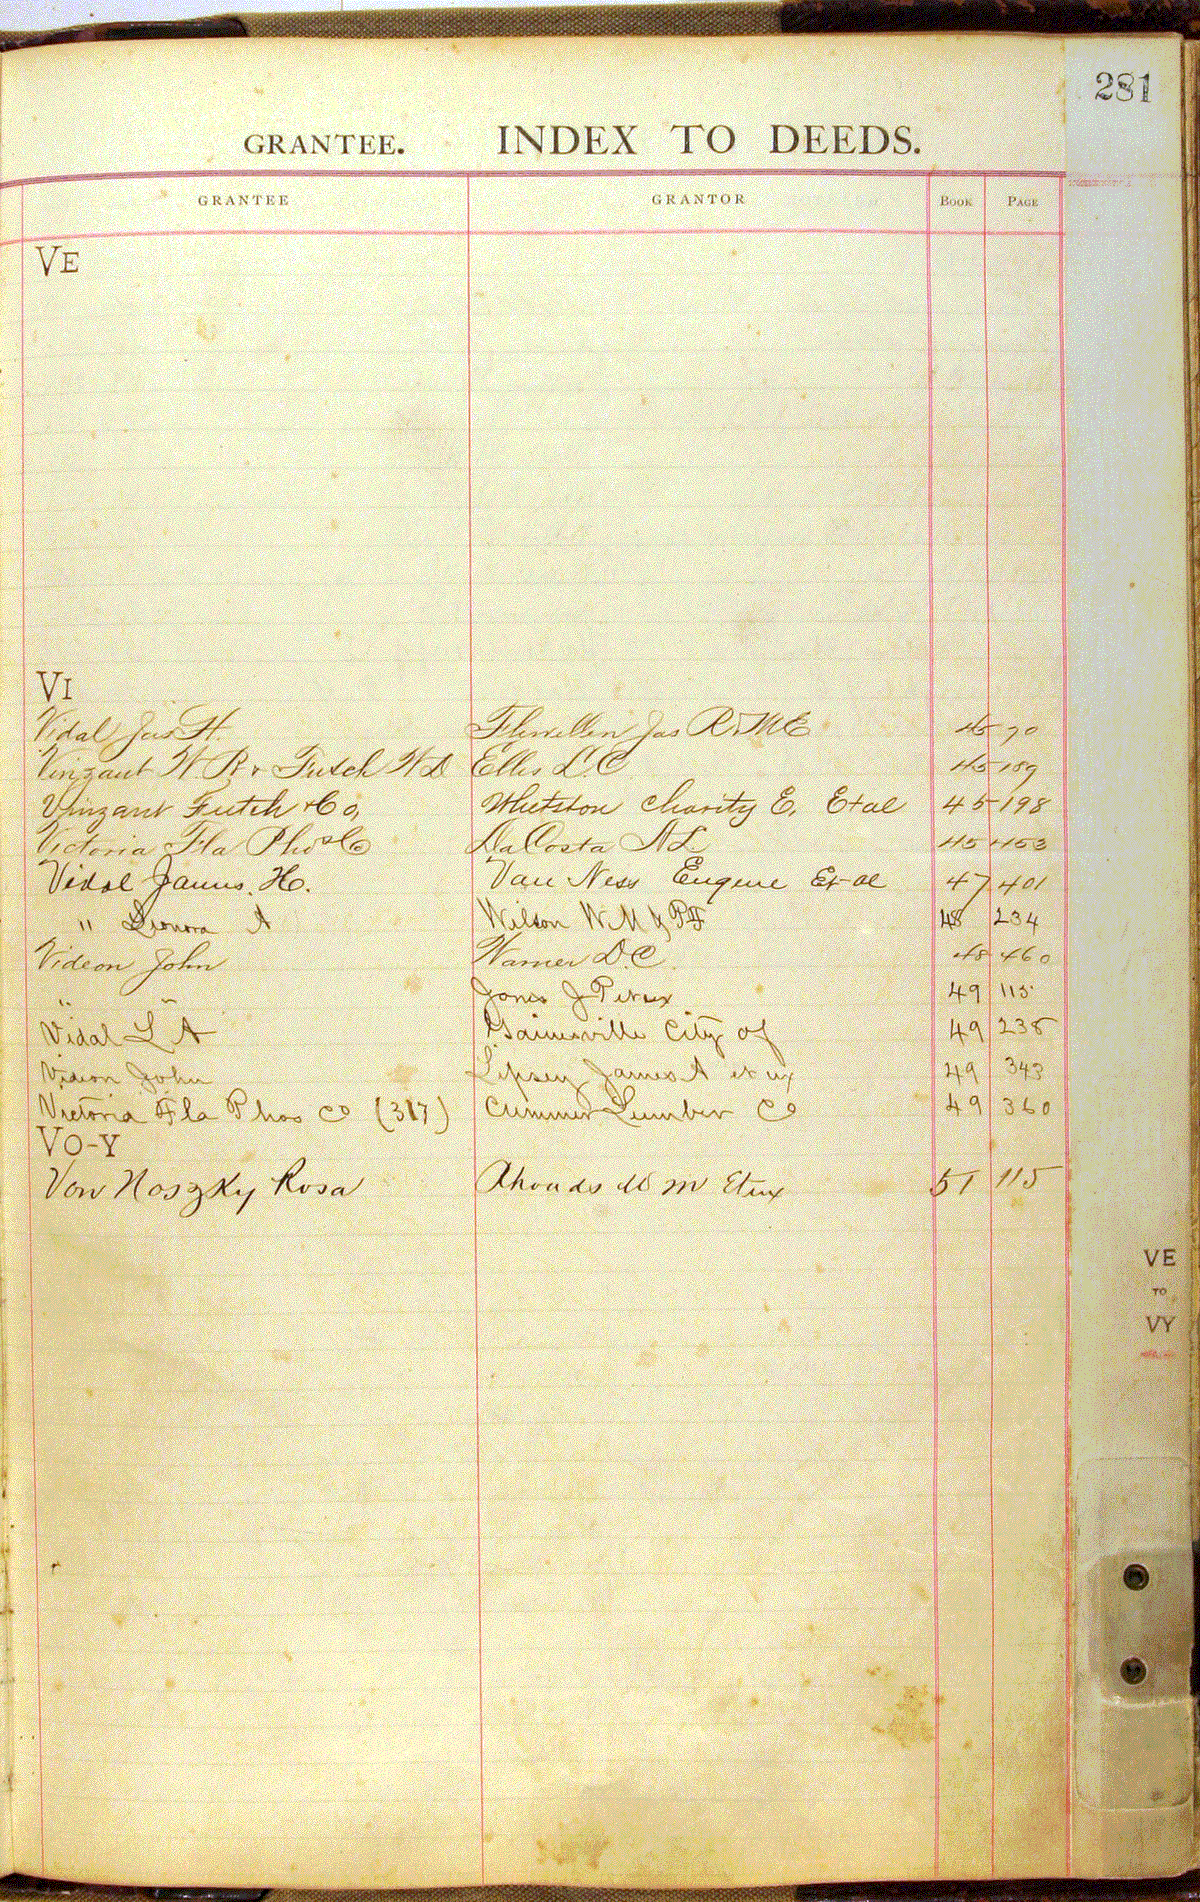 281
GRANTEE. INDEX TO DEEDS.
GRANTEE GRANTOR BOOK PAGE
VE
VI
Vidal Jas H. Flewellen Jas R & M E 45 90
Vinzant W R & Futch W D Ellis D C 45 189
Vinzant Futch & Co, Whetston Charity E. Et al 45 198
Victoria Fla Phos Co DaCosta A L 45 453
Vidal James. H. Van Ness Eugene Et al 47 401
" Leonora A Wilson W M 48 234
Videon John Warner D. C. 48 460
" " Jones J P et ux 49 115
Vidal L A Gainesville City of 49 238
Videon John Lipsey James A et ux 49 343
Victoria Fla Phos Co (317) Cummer Lumber Co 49 360
VO-Y
Von Noszky Rosa W m Et ux 51 115
VE
TO
VY